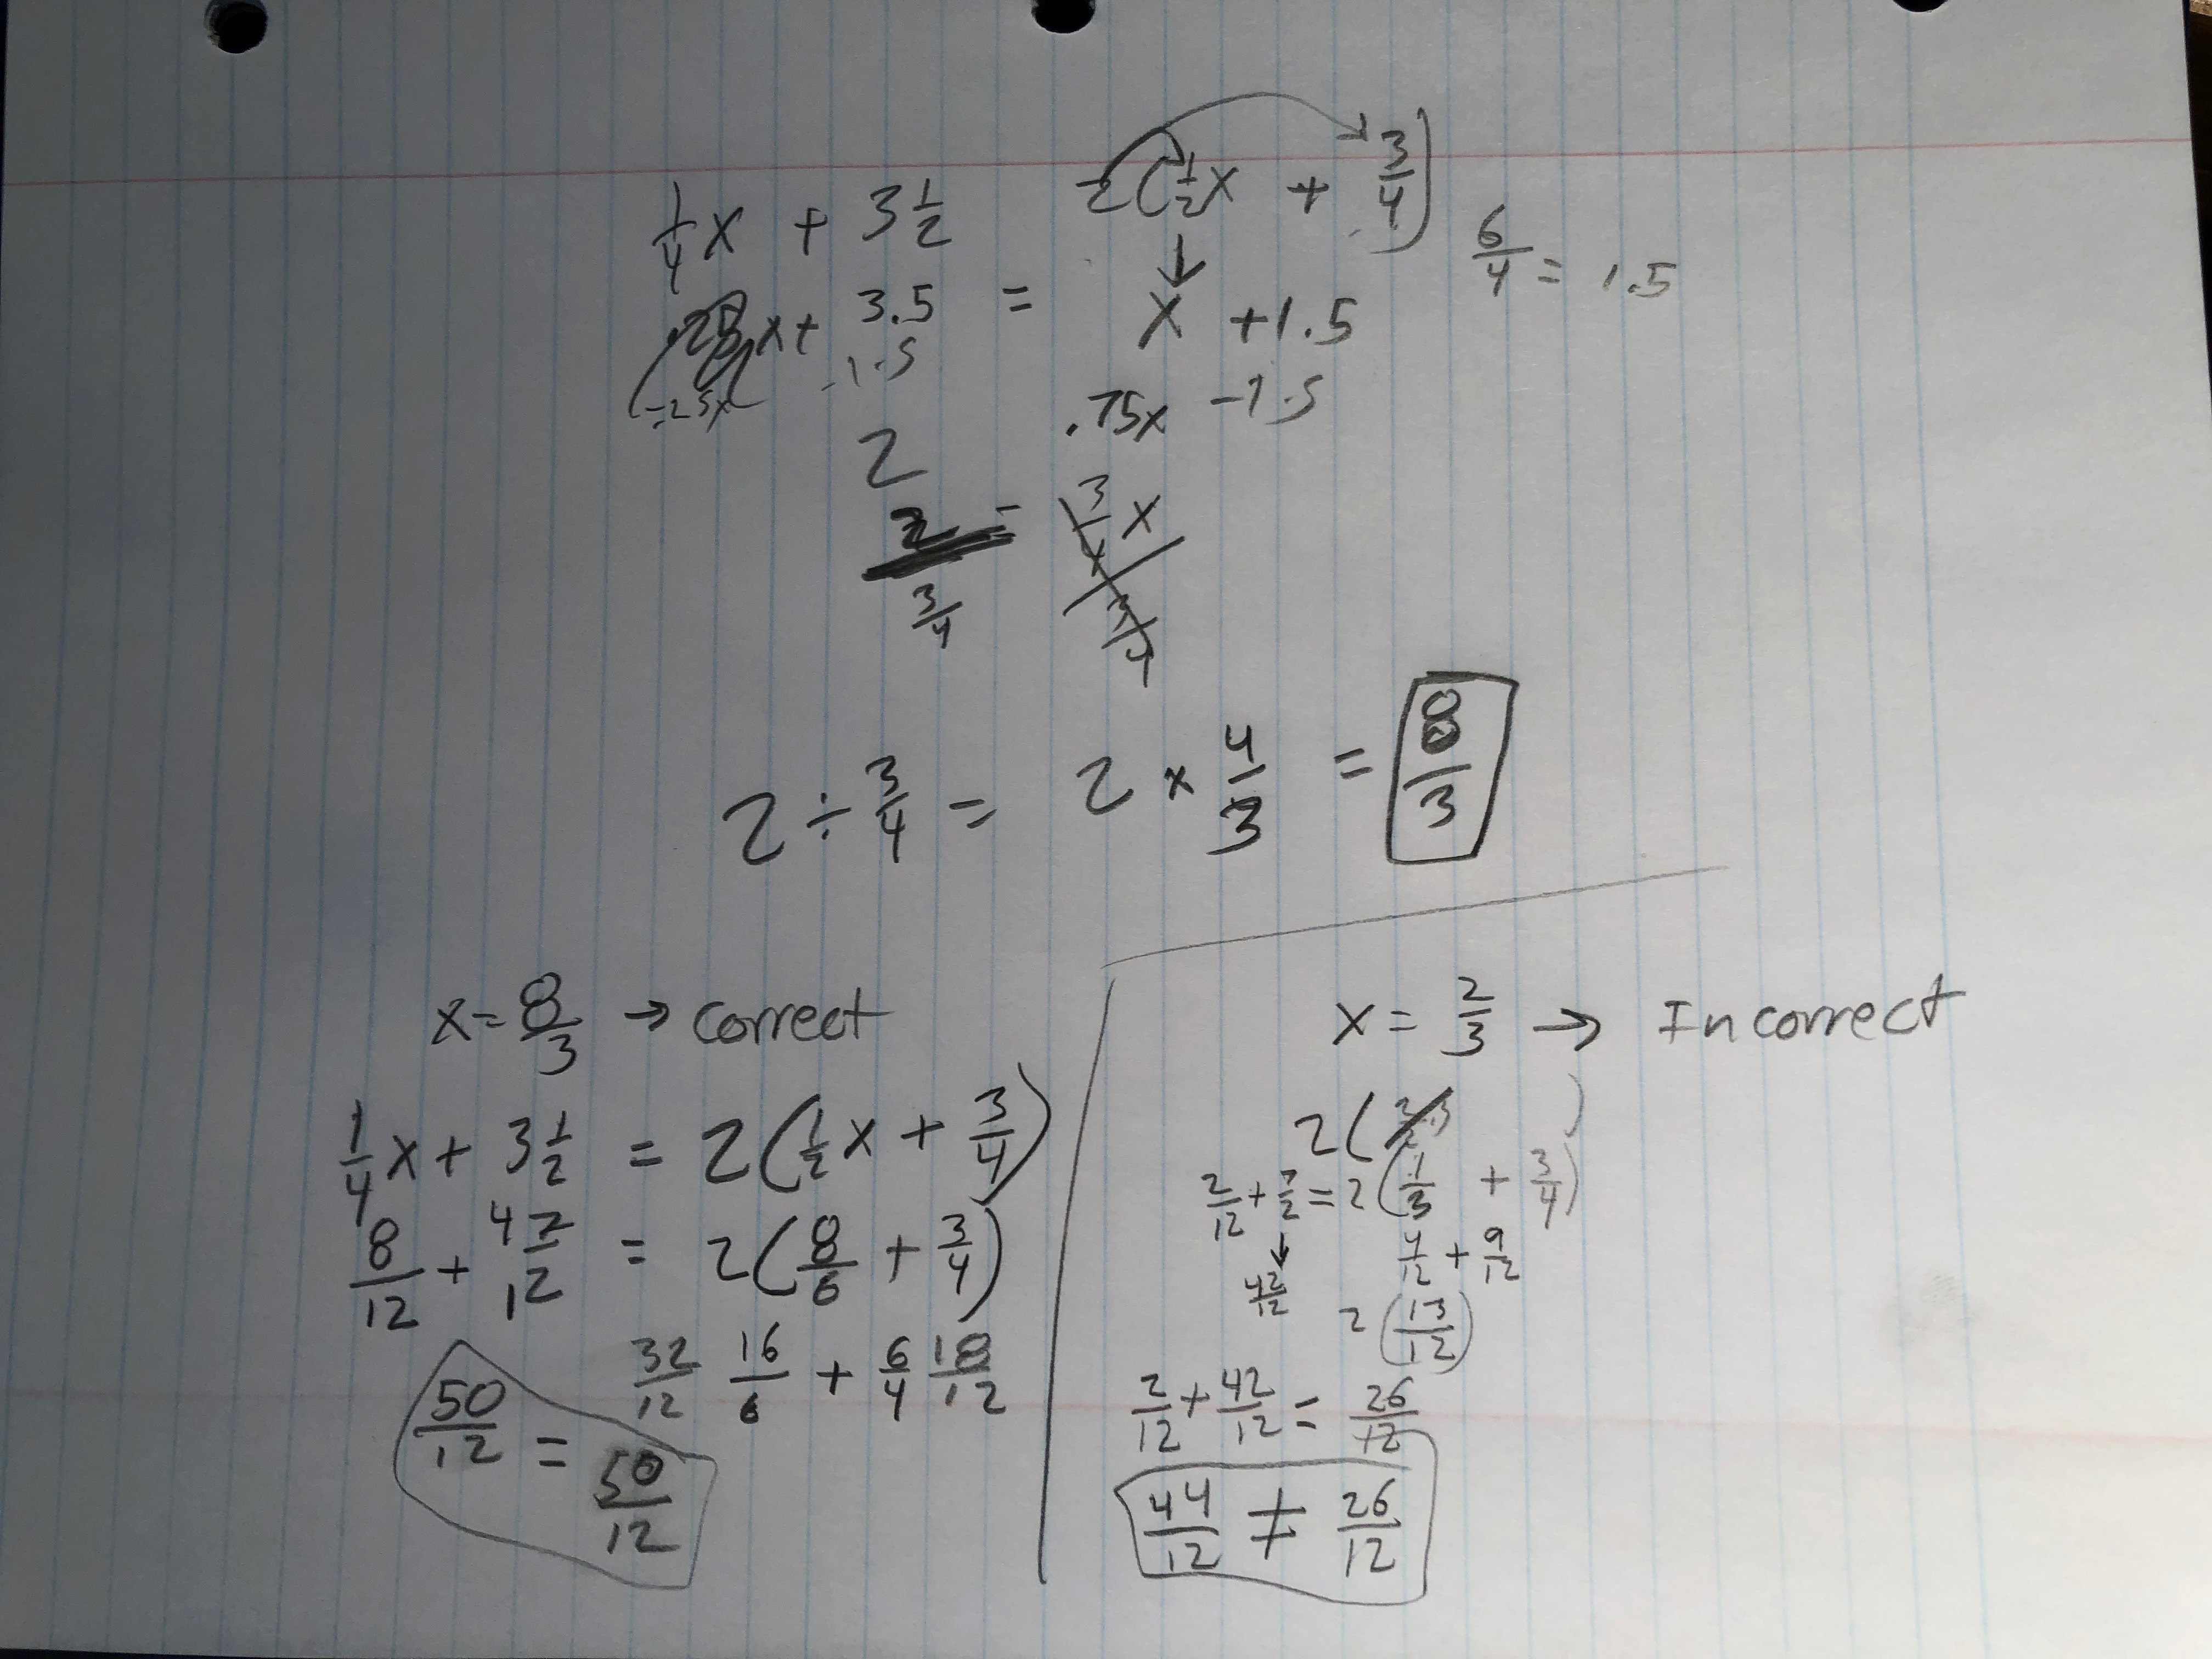 1/4 x + 3 1/2 2(1/2 x + 3/4)
6/4 = 1.5
x + 3.5 = x + 1.5
-.25x -1.5 .75x -1.5
2
2 = 3/4 x
3/4 3/4
2 ÷ 3/4 = 2 × 4/3 = 8/3
x = 8/3 → correct
1/4 x + 3 1/2 = 2(1/2 x + 3/4)
8/12 + 42/12 = 2(8/6 + 3/4)
32/12 16/6 + 6/4 18/12
50/12 = 50/12
x = 2/3 → Incorrect
2( )
2/12 + 7/2 = 2(1/3 + 3/4)
↓ 4/12 + 9/12
42/12 2(13/12)
2/12 + 42/12 = 26/12
44/12 ≠ 26/12